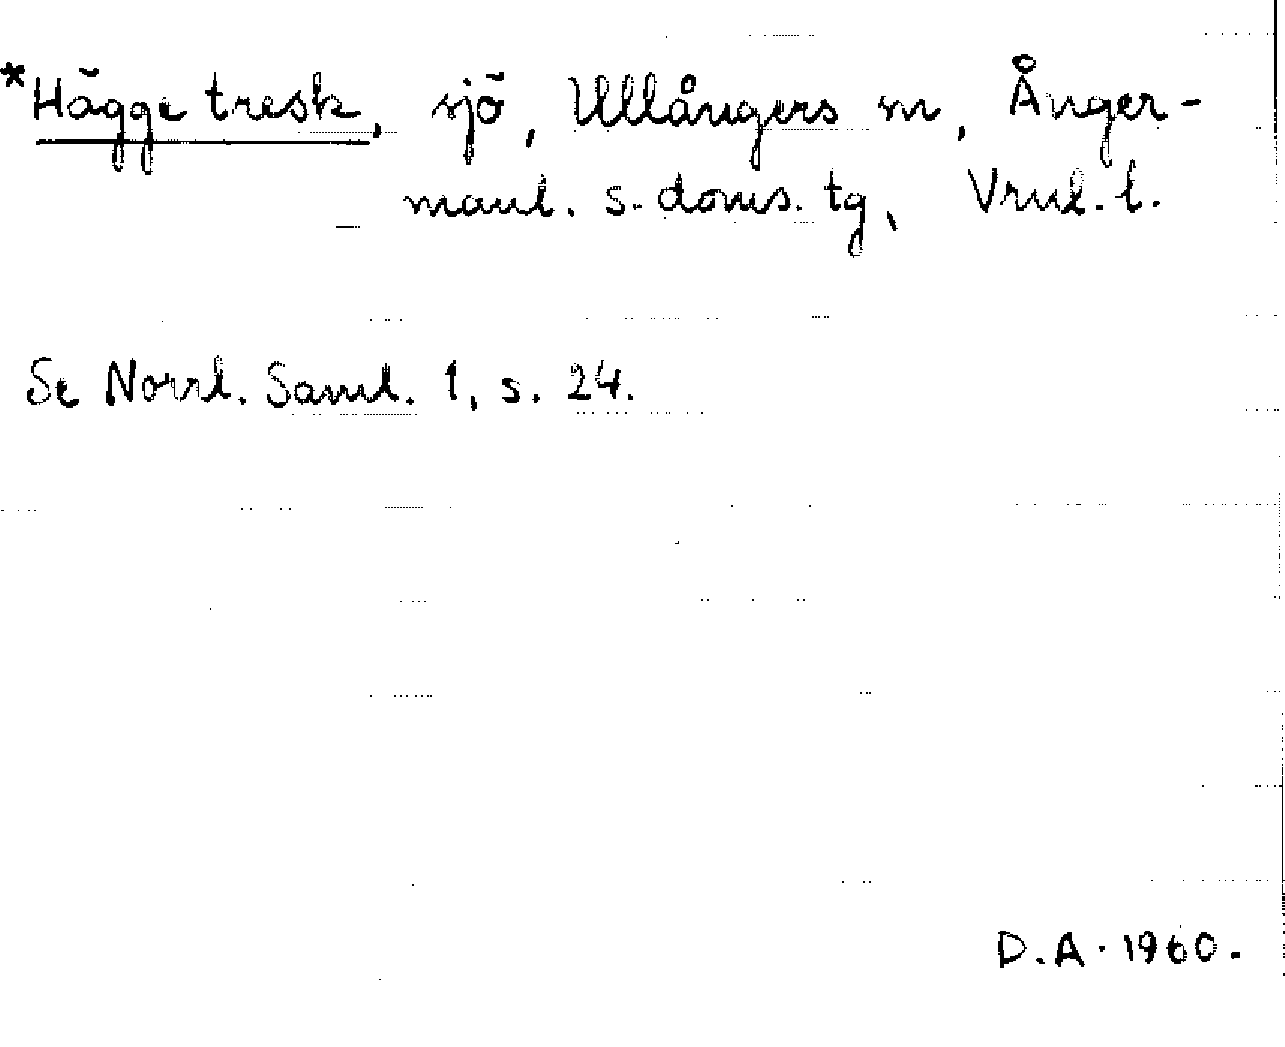 *Hägge tresk, sjö, Ullångers sn, Ånger-
manl. s. doms. tg, Vrnl. l.
Se Norrl. Saml. 1, s. 24.
D.A. 1960.